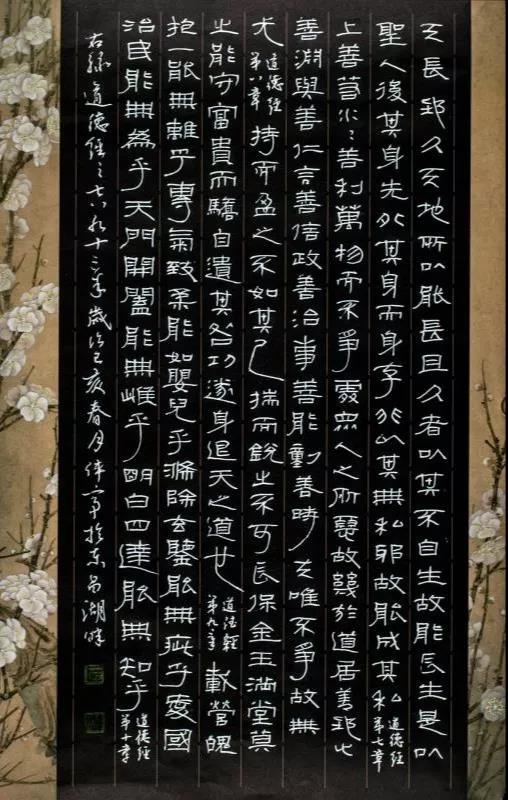 天長地久天地所以能長且久者以其不自生故能長生是以
聖人後其身先外其身而身存非以其無私邪故能成其私
道德經
第七章
上善若水水善利萬物而不爭處眾人之所惡故幾於道居善地心
善淵與善仁言善信政善治事善能動善時夫唯不爭故無
尤
道德經
第八章
持而盈之不如其已揣而銳之不可長保金玉滿堂莫
之能守富貴而驕自遺其咎功遂身退天之道也
道德經
第九章
載營魄
抱一能無離乎專氣致柔能如嬰兒乎滌除玄鑒能無疵乎愛國
治民能無為乎天門開闔能無雌乎明白四達能無知乎
道德經
第十章
右錄道德經之七八九十三章歲次己亥春月偉軍於東昌湖畔